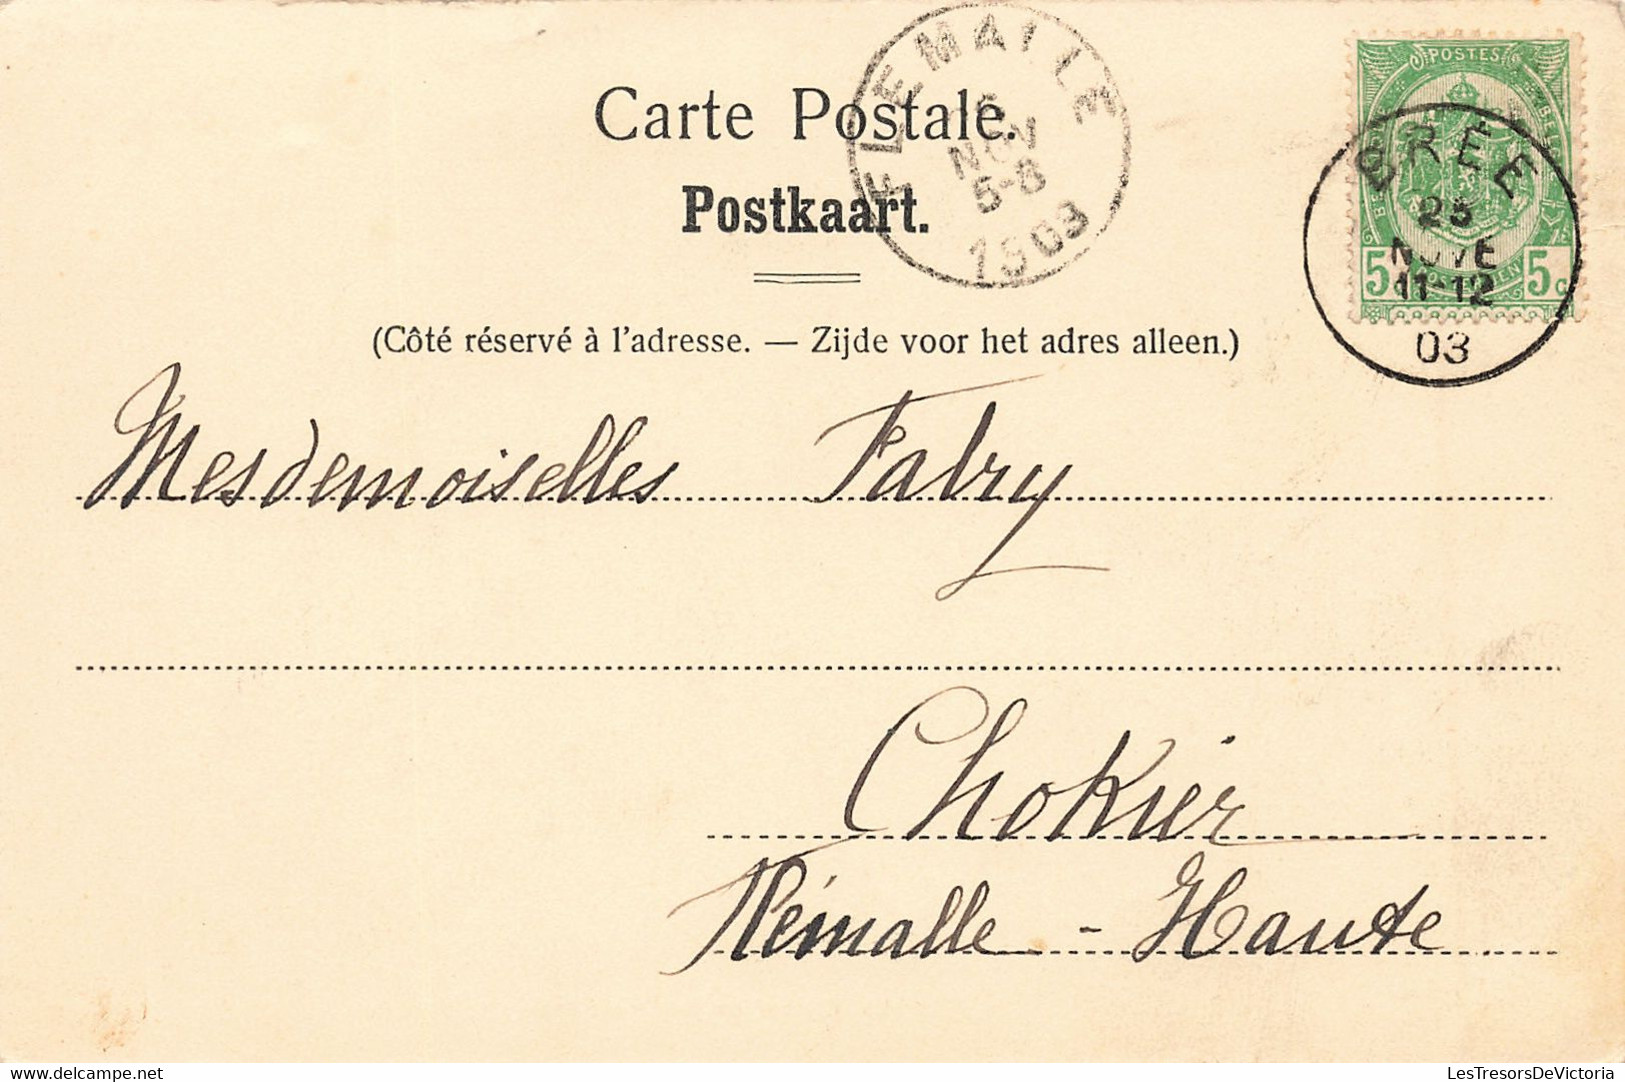 Carte Postale.
Postkaart.
(Côté réservé à l'adresse. — Zijde voor het adres alleen.)
FLEMALLE
NOV
5-8
1903
POSTES
5c 5c
BRÉE
25
NOVE
11-12
03
Mesdemoiselles Fabry
Chokier
Flémalle - Haute
delcampe.net
LesTresorsDeVictoria